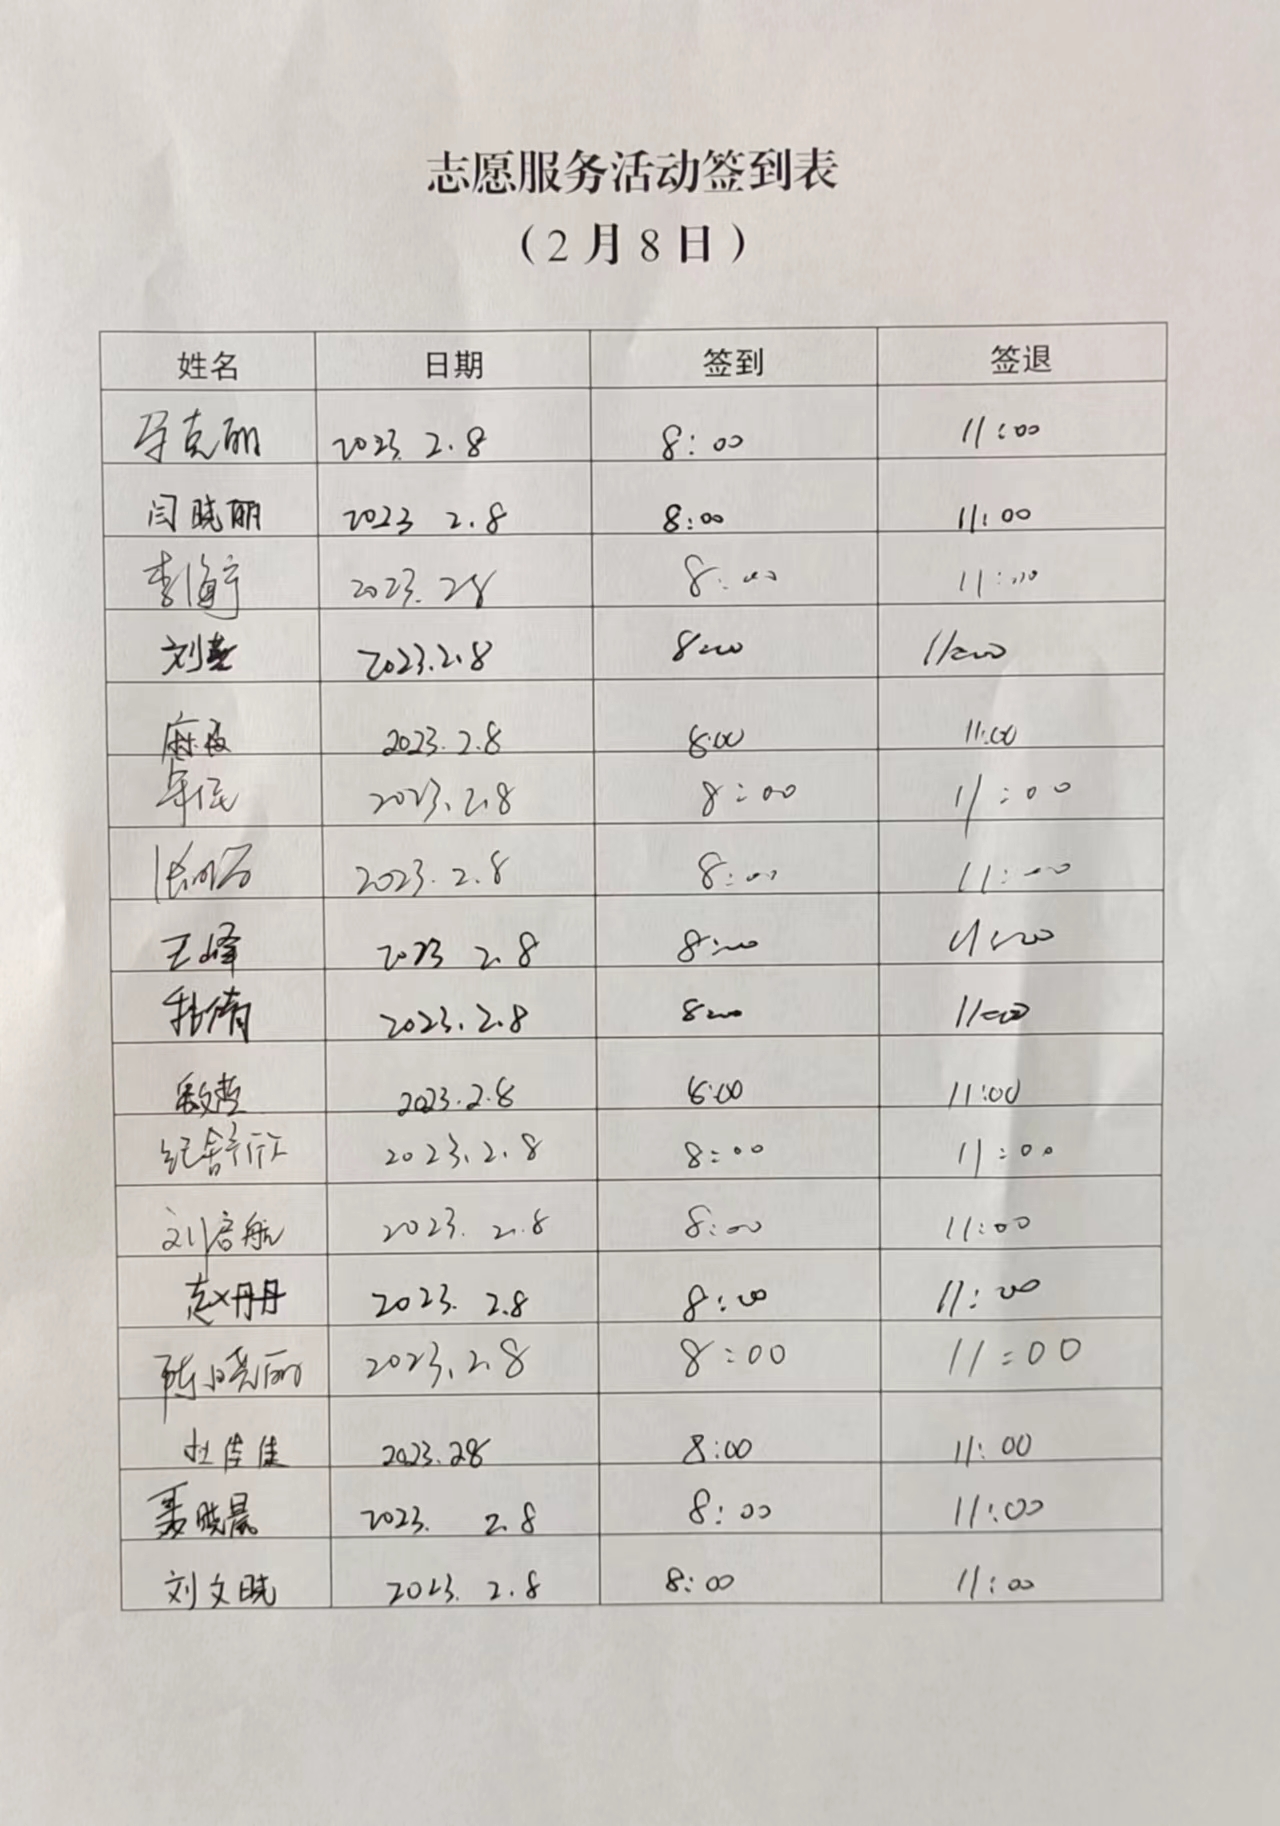 志愿服务活动签到表
（2月8日）
姓名 日期 签到 签退
克丽 2023.2.8 8:00 11:00
闫晓丽 2023 2.8 8:00 11:00
李海宁 2023.28 8:00 11:00
刘 2023.2.8 8:00 11:00
2023.2.8 8:00 11:00
2023.2.8 8:00 11:00
2023.2.8 8:00 11:00
王峰 2023 2.8 8:00 11:00
杜倩 2023.2.8 8:00 11:00
2023.2.8 8:00 11:00
纪舒行 2023.2.8 8:00 11:00
刘启航 2023. 2.8 8:00 11:00
赵丹丹 2023. 2.8 8:00 11:00
陈晓丽 2023.2.8 8:00 11:00
杜佳佳 2023.28 8:00 11:00
聂晓晨 2023. 2.8 8:00 11:00
刘文晓 2023. 2.8 8:00 11:00